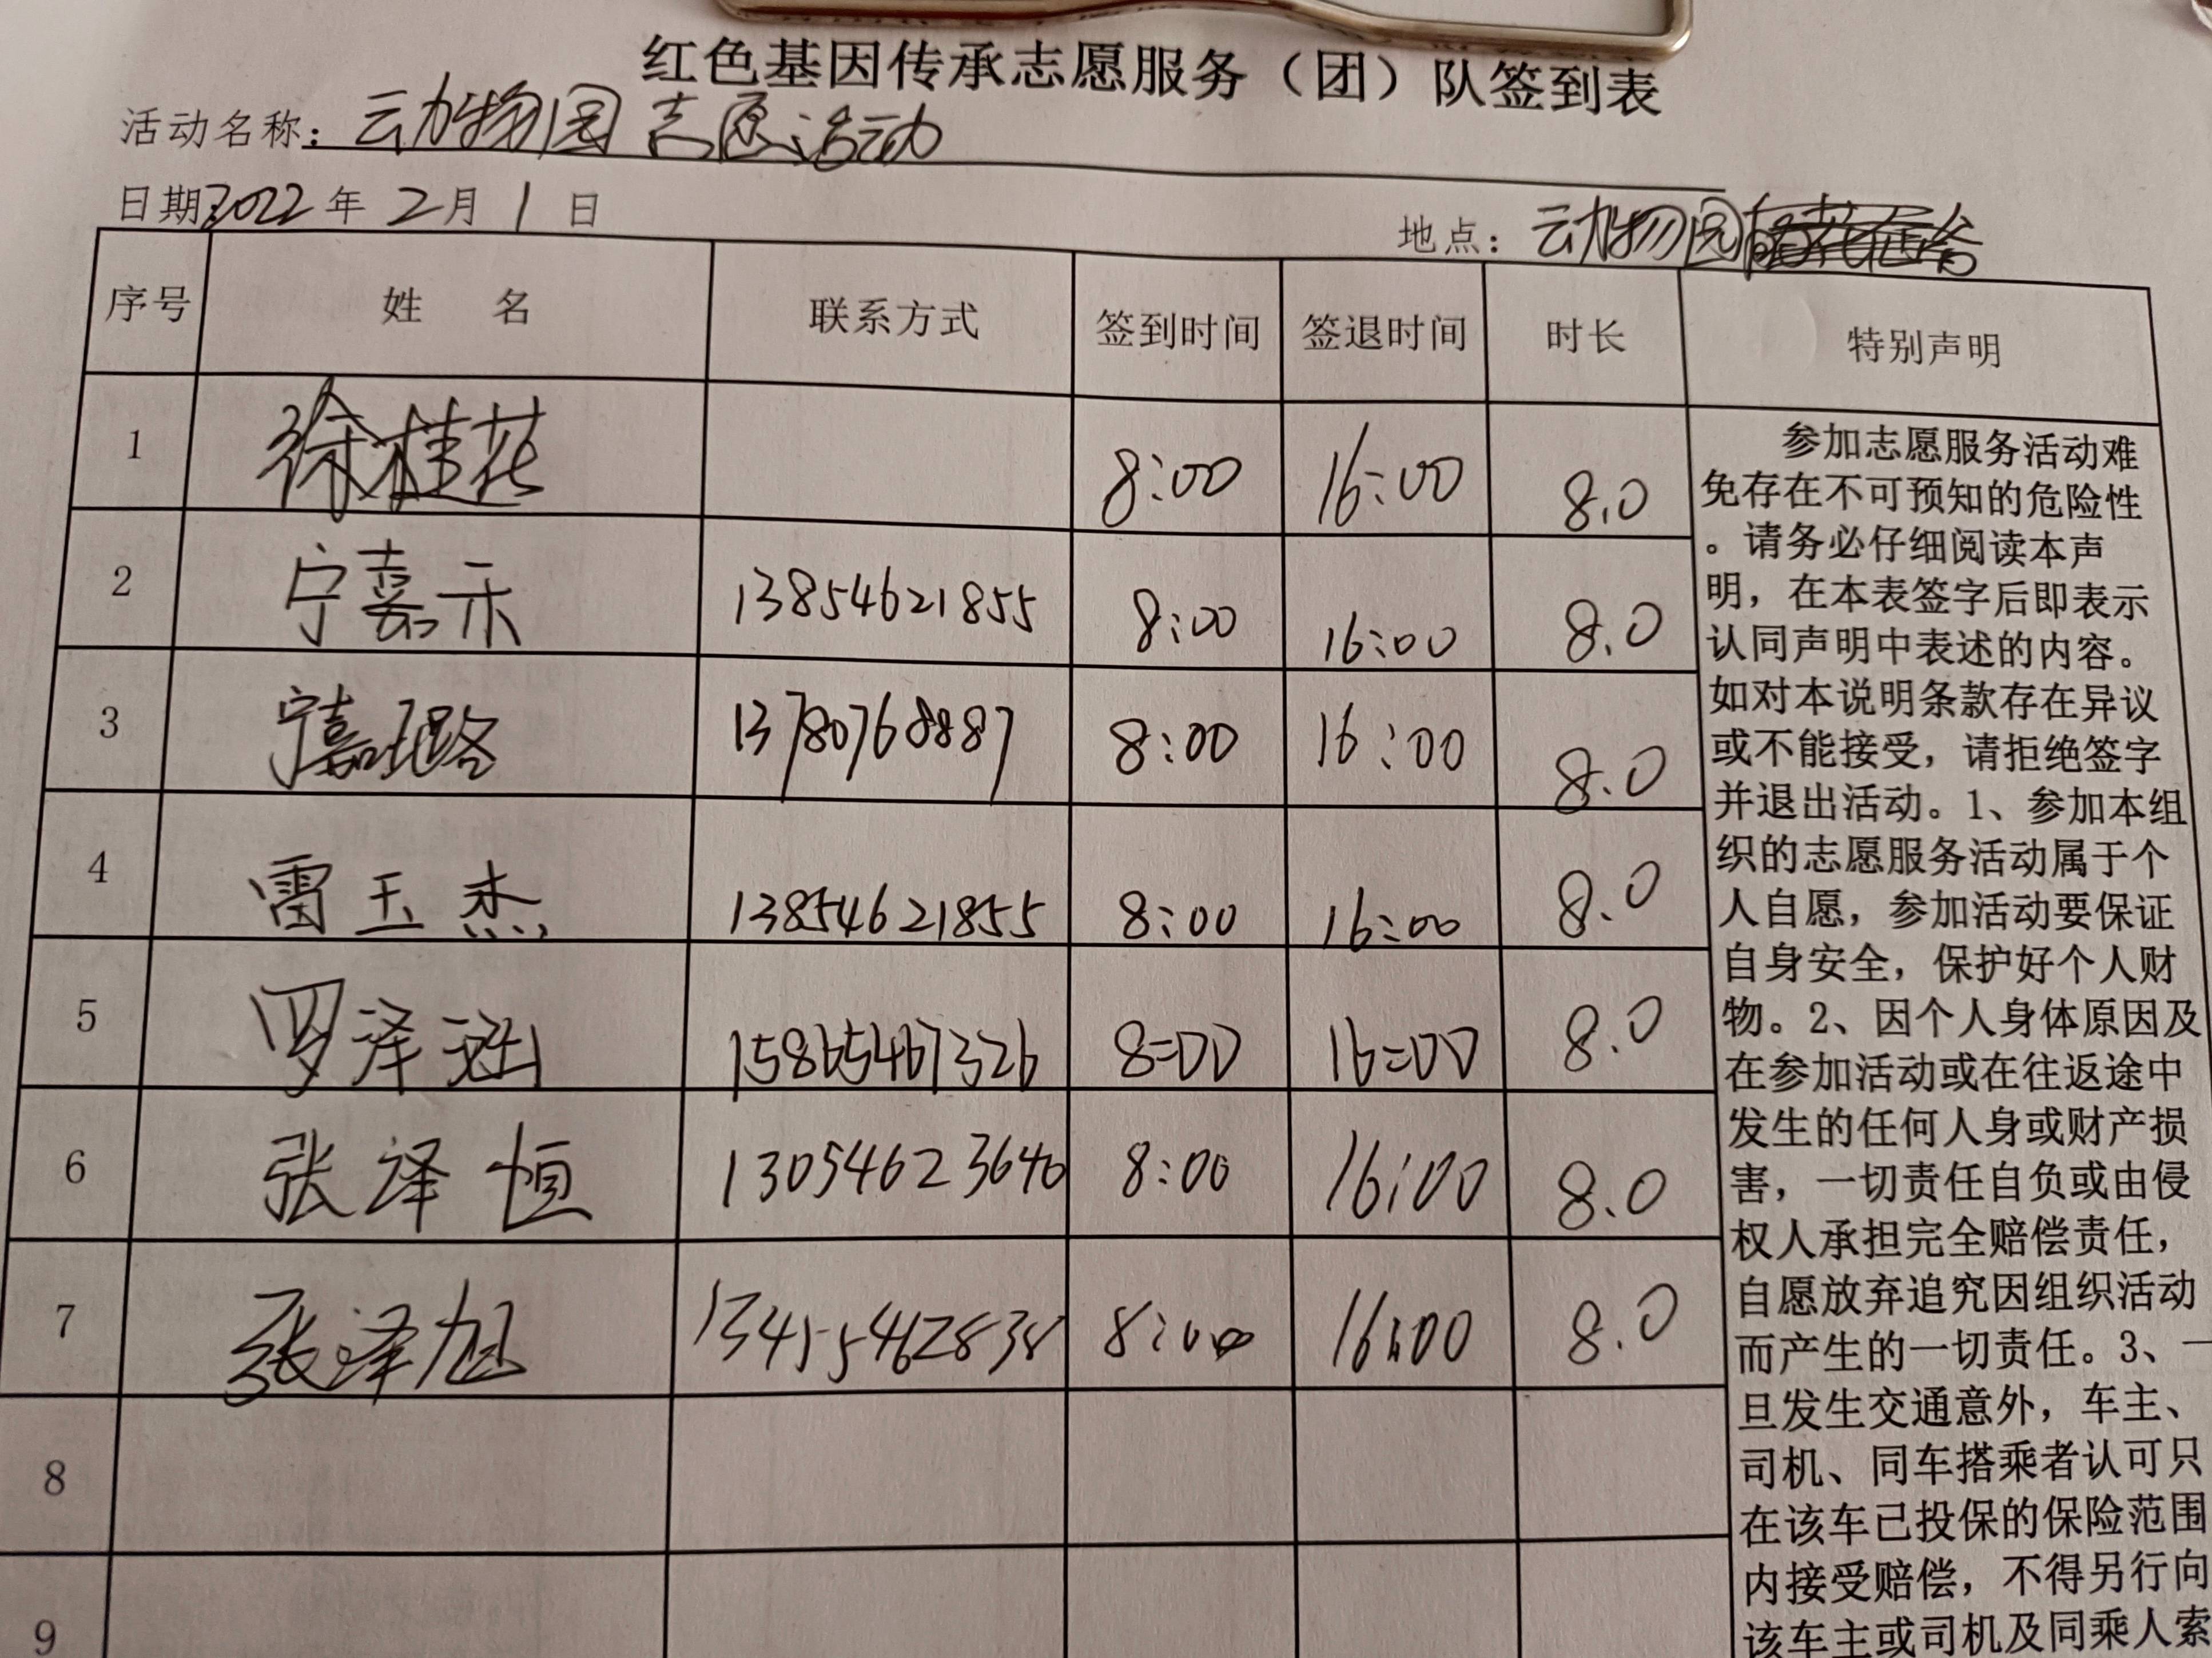 红色基因传承志愿服务（团）队签到表
活动名称：动物园志愿活动
日期：2022年2月1日
地点：动物园
序号 姓 名 联系方式 签到时间 签退时间 时长 特别声明
1 徐桂花 8:00 16:00 8.0
2 宁嘉禾 13854621855 8:00 16:00 8.0
3 宁嘉璐 13780768887 8:00 16:00 8.0
4 雷玉杰 13854621855 8:00 16:00 8.0
5 罗泽涵 15865467326 8:00 16:00 8.0
6 张泽恒 13054623640 8:00 16:00 8.0
7 张泽旭 13455462838 8:00 16:00 8.0
8
9
参加志愿服务活动难
免存在不可预知的危险性
。请务必仔细阅读本声
明，在本表签字后即表示
认同声明中表述的内容。
如对本说明条款存在异议
或不能接受，请拒绝签字
并退出活动。1、参加本组
织的志愿服务活动属于个
人自愿，参加活动要保证
自身安全，保护好个人财
物。2、因个人身体原因及
在参加活动或在往返途中
发生的任何人身或财产损
害，一切责任自负或由侵
权人承担完全赔偿责任，
自愿放弃追究因组织活动
而产生的一切责任。3、一
旦发生交通意外，车主、
司机、同车搭乘者认可只
在该车已投保的保险范围
内接受赔偿，不得另行向
该车主或司机及同乘人索